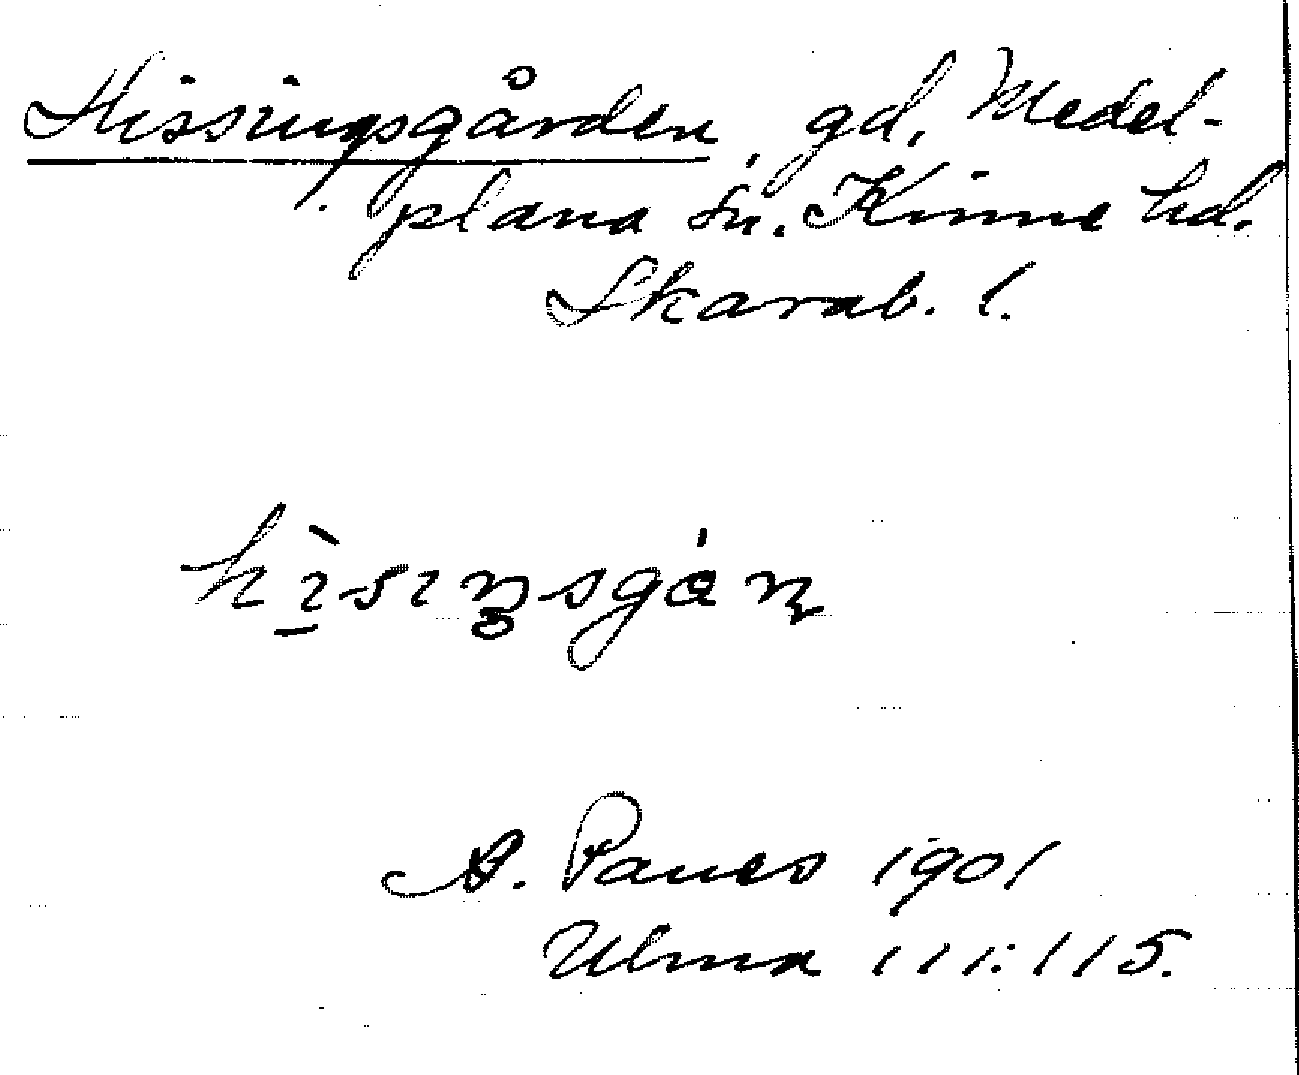 Hissingsgården, gd, Medel-
plana sn. Kinne hd.
Skarab. l.
A. Paues 1901
Ulma 111:115.